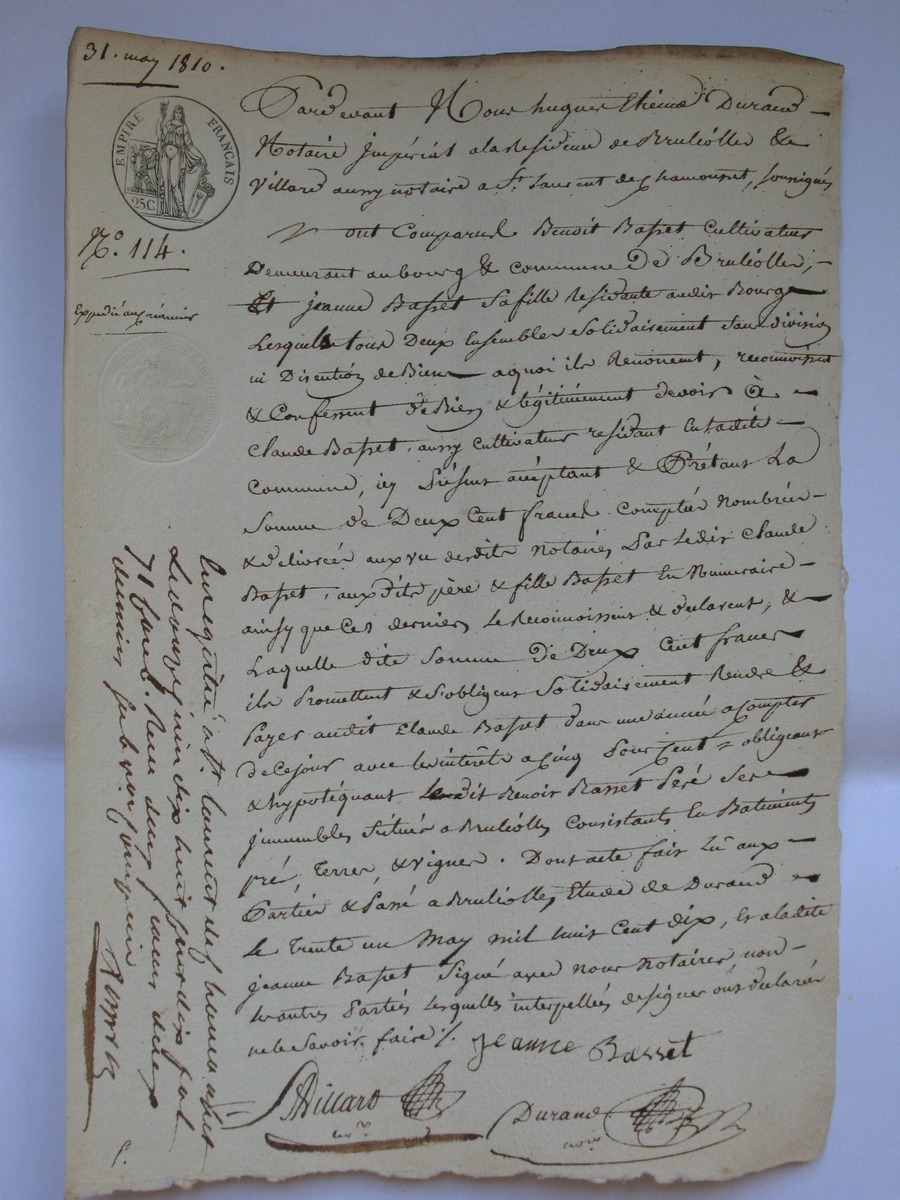 31. may 1810.
EMPIRE FRANÇAIS
25C.
N.o 114.
Pardevant Nous hugues Etiénne Durand
Notaire Impérial a la Residence de Brulioles &
Villard aussy notaire a St. Laurent de chamousset, soussignés
ont Comparus Benoit Basset Cultivateur
Demeurant au bourg & commune De Brulioles,
Et jeanne Basset sa fille Residante audit Bourg
Lesquels tous Deux Ensembles solidairement sans division
ni Discution de Biens a quoi ils Renoncent, reconnoissent
& Confessent de Bien & légitimément devoir à
Claude Basset, aussy cultivateur residant en ladite
Commune, icy Présent acceptant & Prétant La
Somme de Deux Cent francs comptés nombrés
& delivrée aux vu desdits notaires Par Ledit Claude
Basset, auxdits père & fille Basset En Numeraire
ainsy que Ces derniers Le Reconnoissent & declarent, &
Laquelle dite somme De Deux Cent francs
ils Promettent & s'obligent solidairement Rendre &
Payer audit Claude Basset dans une année a compter
de Ce jour avec les intérêts a cinq Pour Cent = obligeant
& hypotéquant Ledit Benoit Basset Peré Ses
jmmeubles situés a Brulioles Consistants En Batiments
pré, Terres, & vignes. Dont acte fait Lu aux
Parties & Passé a Brulioles Etude de Durand
Le Trente un May mil huit Cent dix, Et a ladite
jeanne Basset signé avec nous notaires, non
les autres Parties Lesquelles interpellées de signer ont declarées
ne le savoir faire /.
Jeanne Basset
Villard
Durand
nore
Enregistré a St. laurent de chamousset
Le douze juin dix huit cent dix fol
71 Reçu deux francs